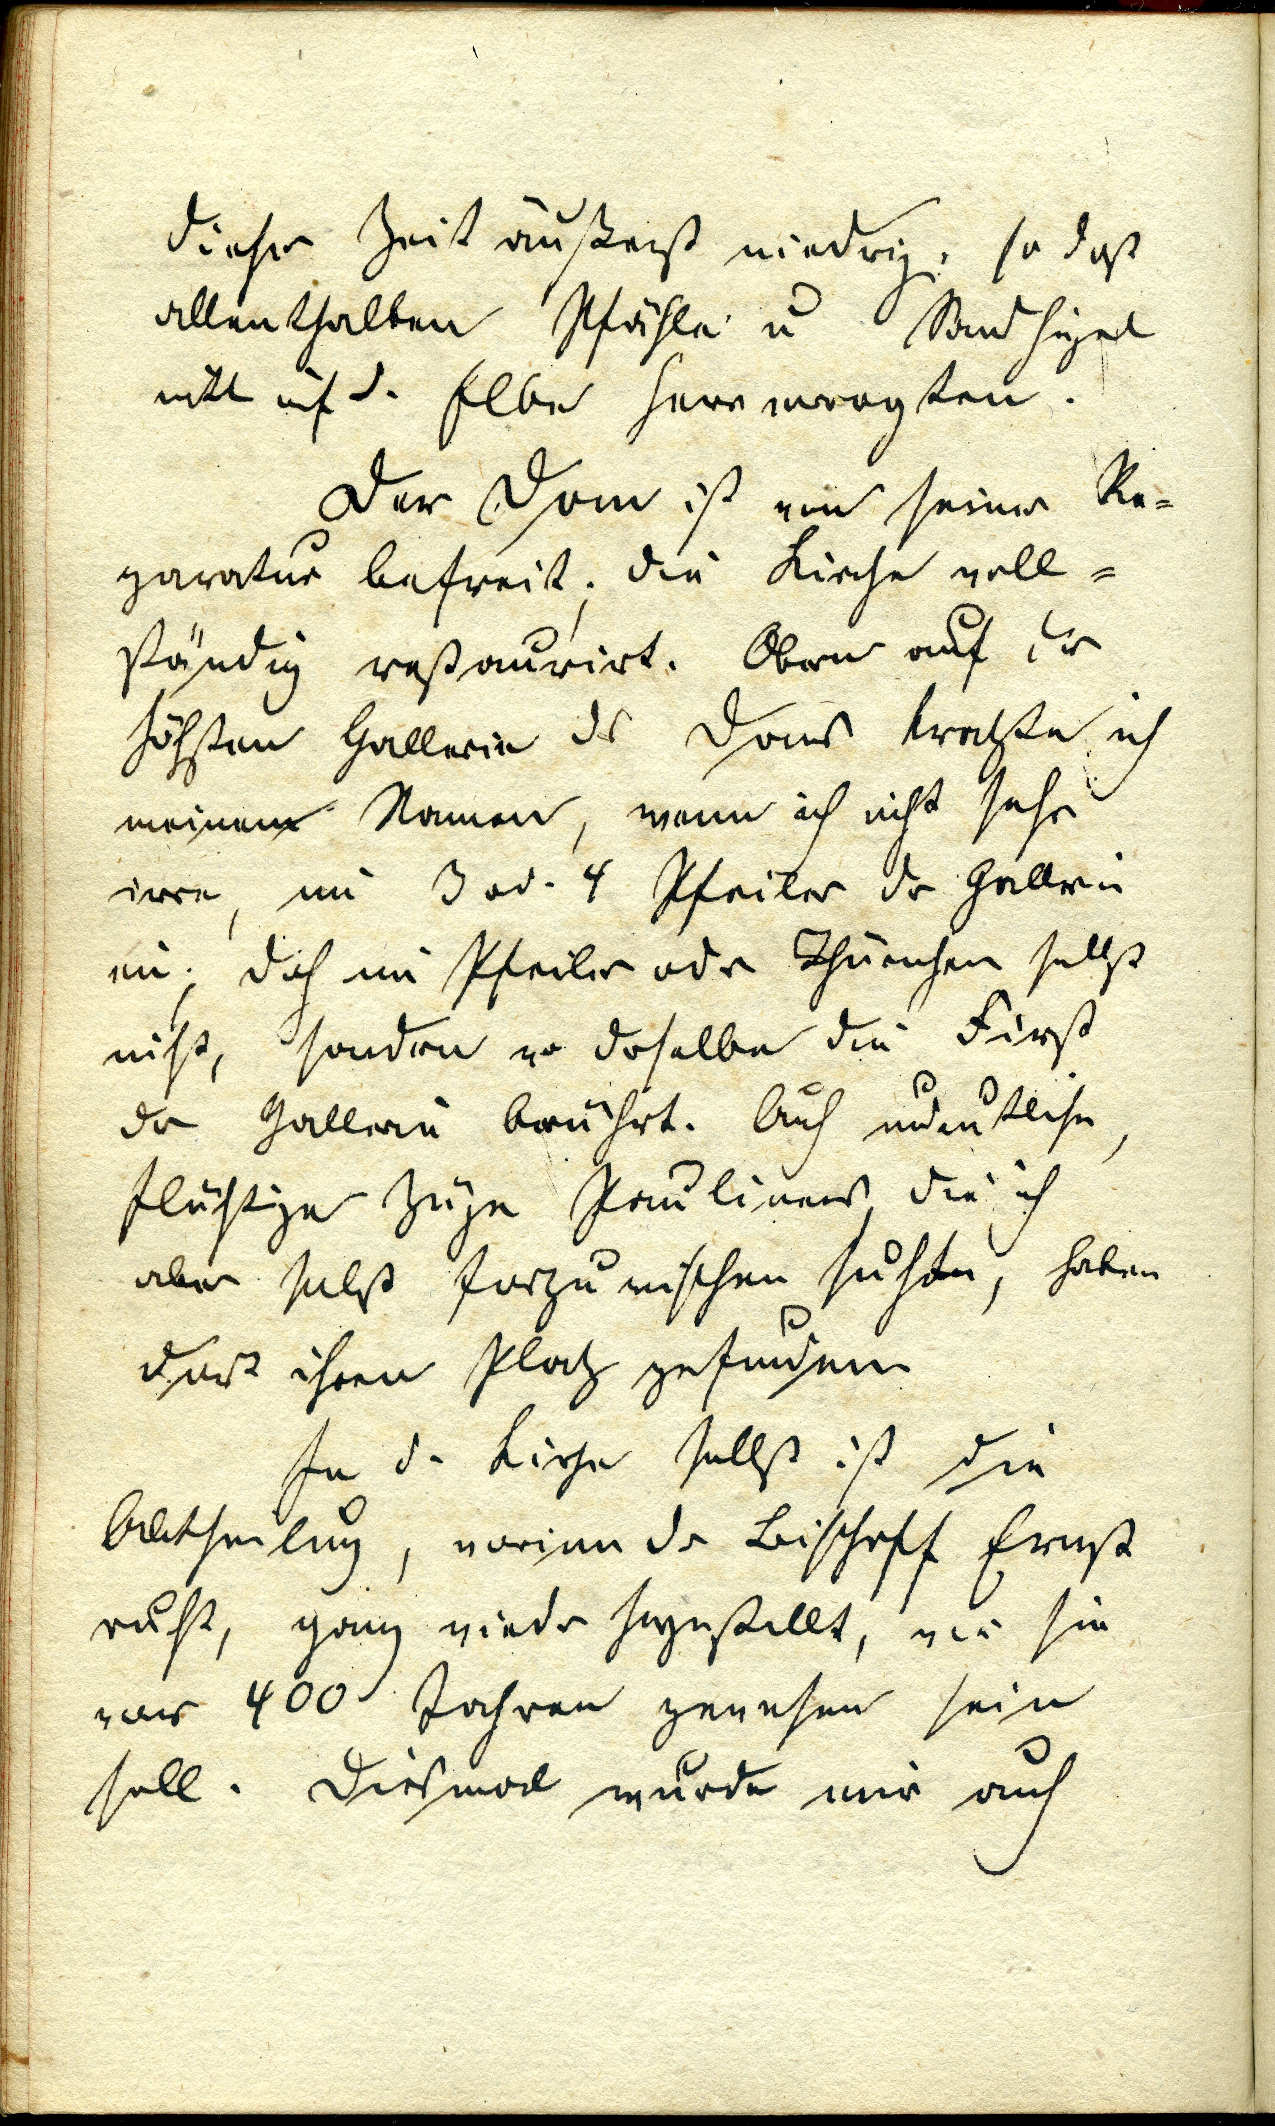 dieser Zeit äußerst niedrig, so daß
allenthalben Pfähle u Sandhügel
auf d. Elbe hervorragten.
Der Dom ist von seiner Re=
paratur befreit; die Kirche voll=
ständig restaurirt. Oben auf der
höchsten Gallerie des Doms kratzte ich
meinen Namen, wenn ich nicht sehr
irre, im 3 od. 4 Pfeiler der Gallerie
ein; doch im Pfeiler oder Thürmchen selbst
nicht, sondern wo derselbe die First
der Gallerie berührt. Auch undeutliche,
flüchtige Züge Paulinens, die ich
aber selbst fortzuwischen suchte, haben
dort ihren Platz gefunden
In d. Kirche selbst ist die
Abtheilung, worinn der Bischoff Ernst
ruht, ganz wieder hergestellt, wie sie
vor 400 Jahren gewesen sein
soll. Diesmal wurde mir auch